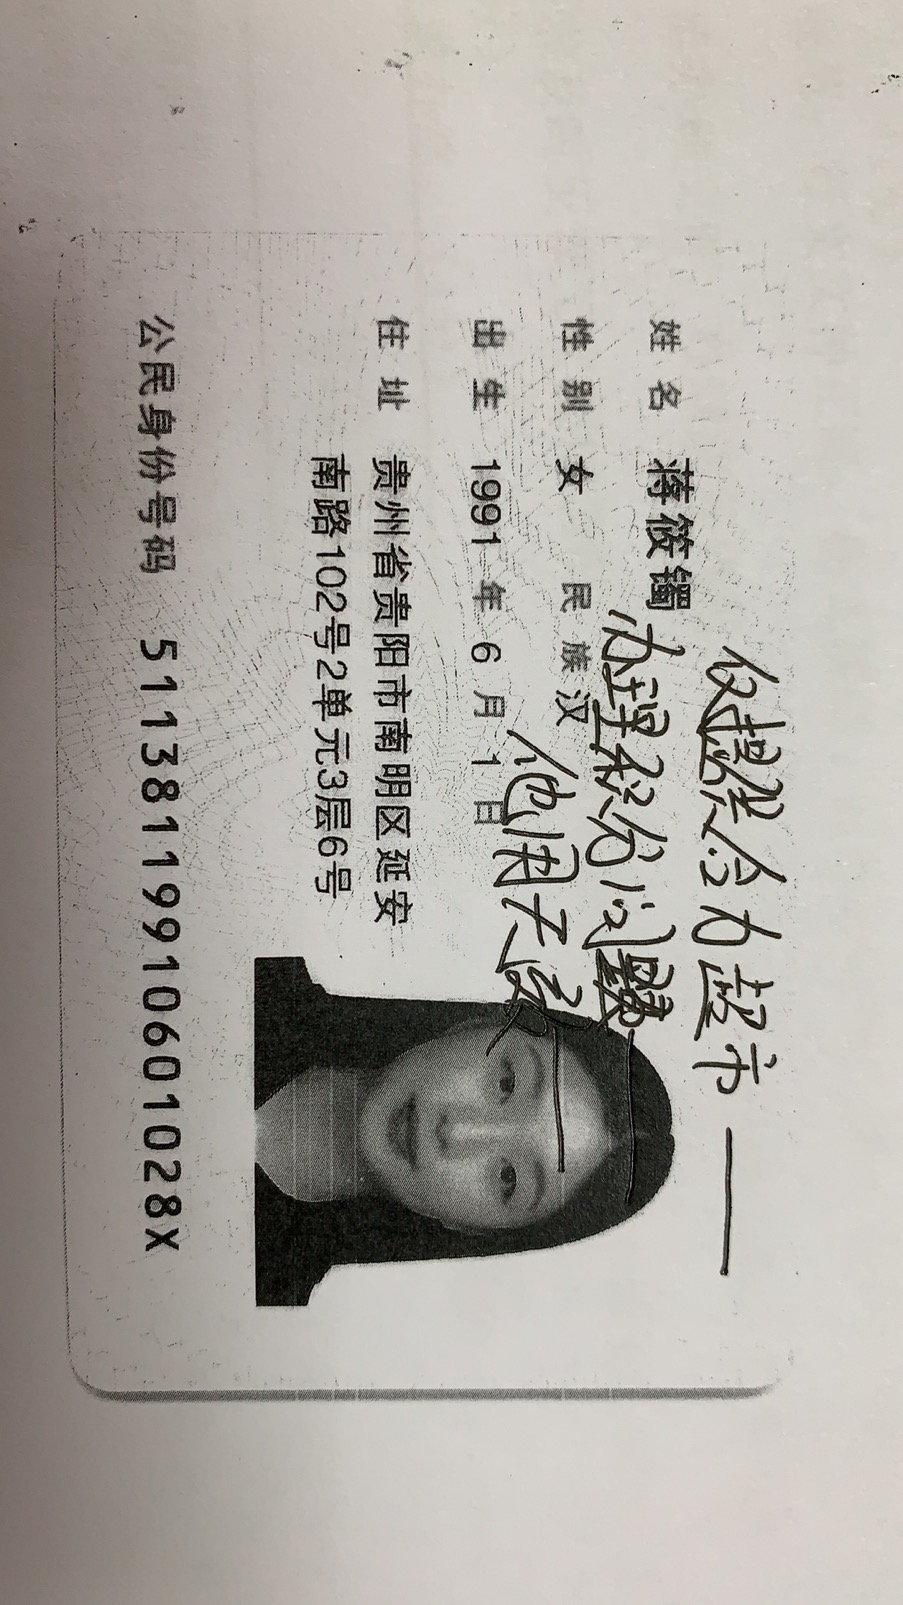 姓名 蒋筱镯
性别 女 民族 汉
出生 1991年6月1日
住址 贵州省贵阳市南明区延安
南路102号2单元3层6号
公民身份号码 51138119910601028X
仅提供合力超市
办理积分问题
他用无效